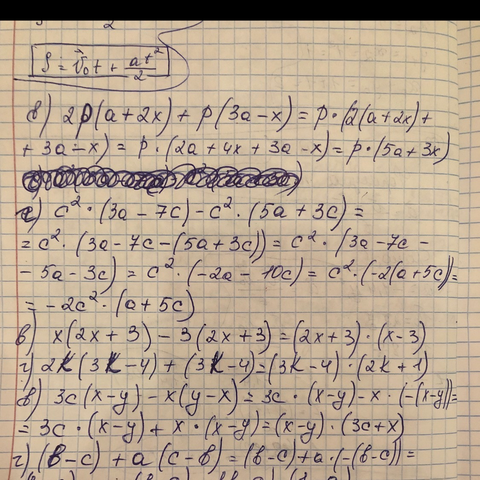 2
S = v⃗₀t + at²/2
в) 2p(a+2x) + p(3a-x) = p·(2(a+2x)+
+ 3a-x) = p·(2a+4x+3a-x) = p·(5a+3x)
c²·(3a-7c) - c²·(5a+3c) =
= c²·(3a-7c-(5a+3c)) = c²·(3a-7c-
- 5a-3c) = c²·(-2a-10c) = c²·(-2(a+5c)) =
= -2c²·(a+5c)
в) x(2x+3) - 3(2x+3) = (2x+3)·(x-3)
г) 2k(3k-4) + (3k-4) = (3k-4)·(2k+1)
в) 3c(x-y) - x(y-x) = 3c·(x-y) - x·(-(x-y)) =
= 3c·(x-y) + x·(x-y) = (x-y)·(3c+x)
г) (b-c) + a(c-b) = (b-c) + a·(-(b-c)) =